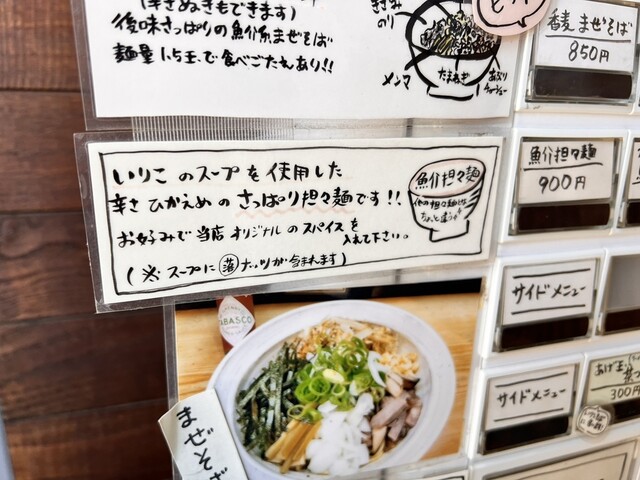 (辛さぬきもできます)
後味さっぱりの魚介系まぜそば
麺量1.5玉で食べごたえあり!!
きざみ
のり
メンマ
たまねぎ
あぶり
チャーシュー
いりこのスープを使用した
辛さひかえめのさっぱり担々麺です!!
お好みで当店オリジナルのスパイスを
入れて下さい。
(※スープに落ナッツが含まれます)
魚介担々麺
他の担々麺とは
ちょっと違うよ
まぜそば
850円
魚介担々麺
900円
サイドメニュー
サイドメニュー
あげ玉
300円
ABASCO
まぜそば